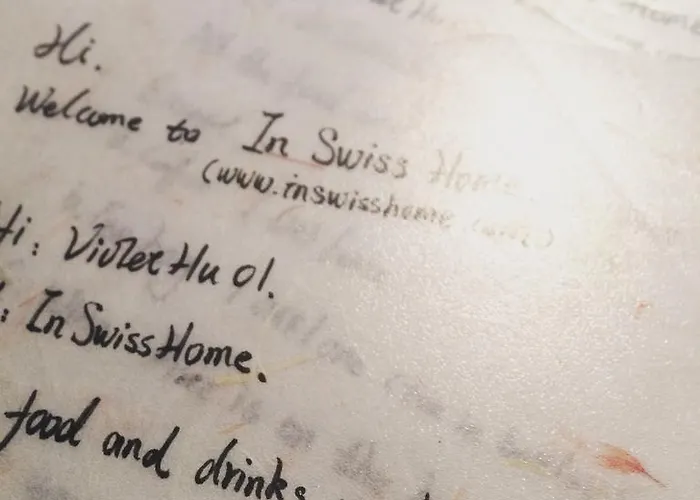 Hi.
Welcome to In Swiss Home
(www.inswisshome.com)
Hi: VioletHu01.
: InSwissHome.
food and drinks